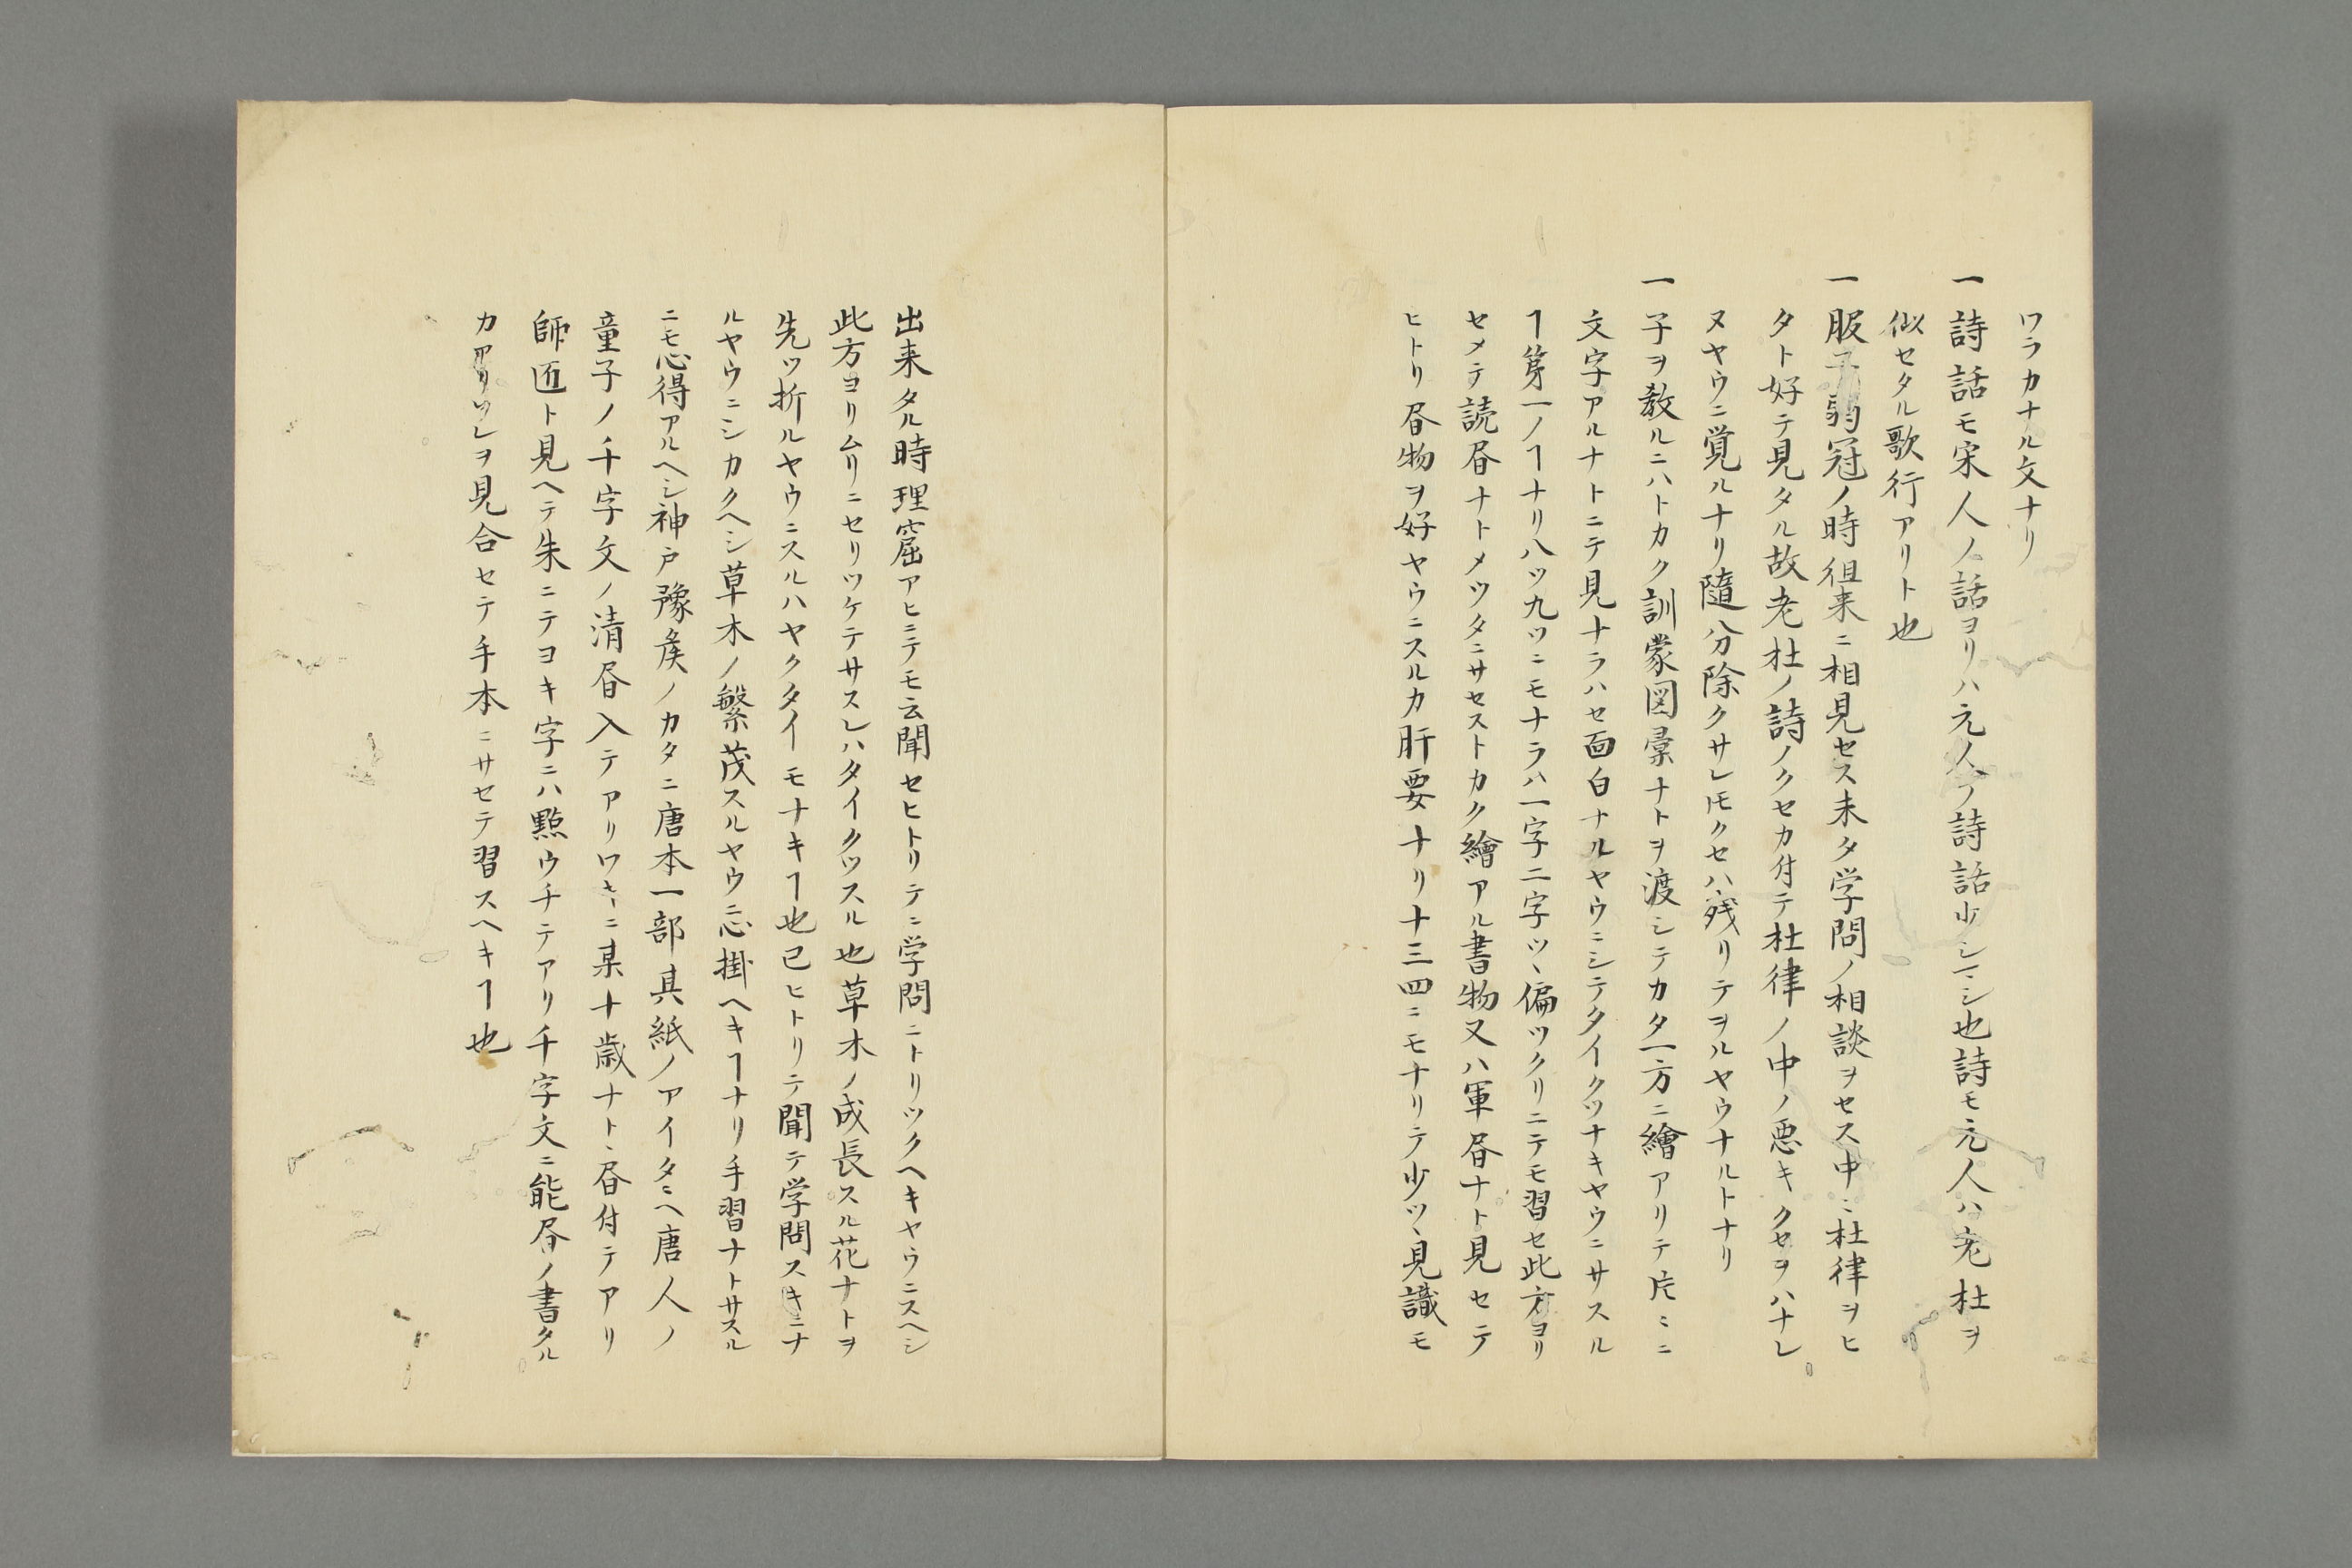 ワラカナル文ナリ
一詩話モ宋人ノ話ヨリハ元人ノ詩話少シヨシ也詩モ元人ハ老杜ヲ
似セタル歌行アリト也
一服子弱冠ノ時徂来ニ相見セス未タ学問ノ相談ヲセス中ニ杜律ヲヒ
タト好テ見タル故老杜ノ詩ノクセカ付テ杜律ノ中ノ悪キクセヲハナレ
ヌヤウニ覚ルナリ随分除クサレ𪜈クセハ残リテヲルヤウナルトナリ
一子ヲ教ルニハトカク訓蒙図彙ナトヲ渡シテカタ一方ニ繪アリテ片〻ニ
文字アルナトニテ見ナラハセ面白ナルヤウニシテタイクツナキヤウニサスル
ヿ第一ノヿナリ八ツ九ツニモナラハ一字二字ツヽ偏ツクリニテモ習セ此方ヨリ
セメテ読昼ナトメツタニサセストカク繪アル書物又ハ軍昼ナト見セテ
ヒトリ昼物ヲ好ヤウニスルカ肝要ナリ十三四ニモナリテ少ツヽ見識モ
出来タル時理窟アヒニテモ云聞セヒトリテニ学問ニトリツクヘキヤウニスヘシ
此方ヨリムリニセリツケテサスレハタイクツスル也草木ノ成長スル花ナトヲ
先ツ折ルヤウニスルハヤクタイモナキヿ也已ヒトリテ聞テ学問スキニナ
ルヤウニシカクヘシ草木ノ繁茂スルヤウニ心掛ヘキヿナリ手習ナトサスル
ニモ心得アルヘシ神戸豫矦ノカタニ唐本一部其紙ノアイタニヘ唐人ノ
童子ノ千字文ノ清昼入テアリワキニ某十歳ナトヽ昼付テアリ
師匠ト見ヘテ朱ニテヨキ字ニハ點ウチテアリ千字文ニ能昼ノ書タル
カアリソレヲ見合セテ手本ニサセテ習スヘキヿ也